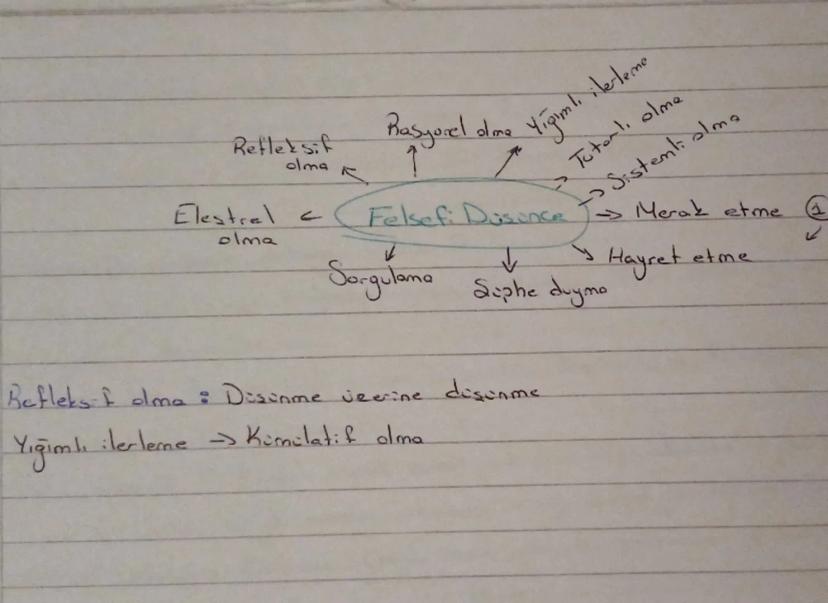 Yığımlı ilerleme
Rasyonel olma
Tutarlı olma
Refleksif
olma
Sistemli olma
Eleştirel
olma
Felsefi Düşünce
Merak etme 1
Sorgulama
Şüphe duyma
Hayret etme
Refleksif olma : Düşünme üzerine düşünme
Yığımlı ilerleme → Kümülatif olma